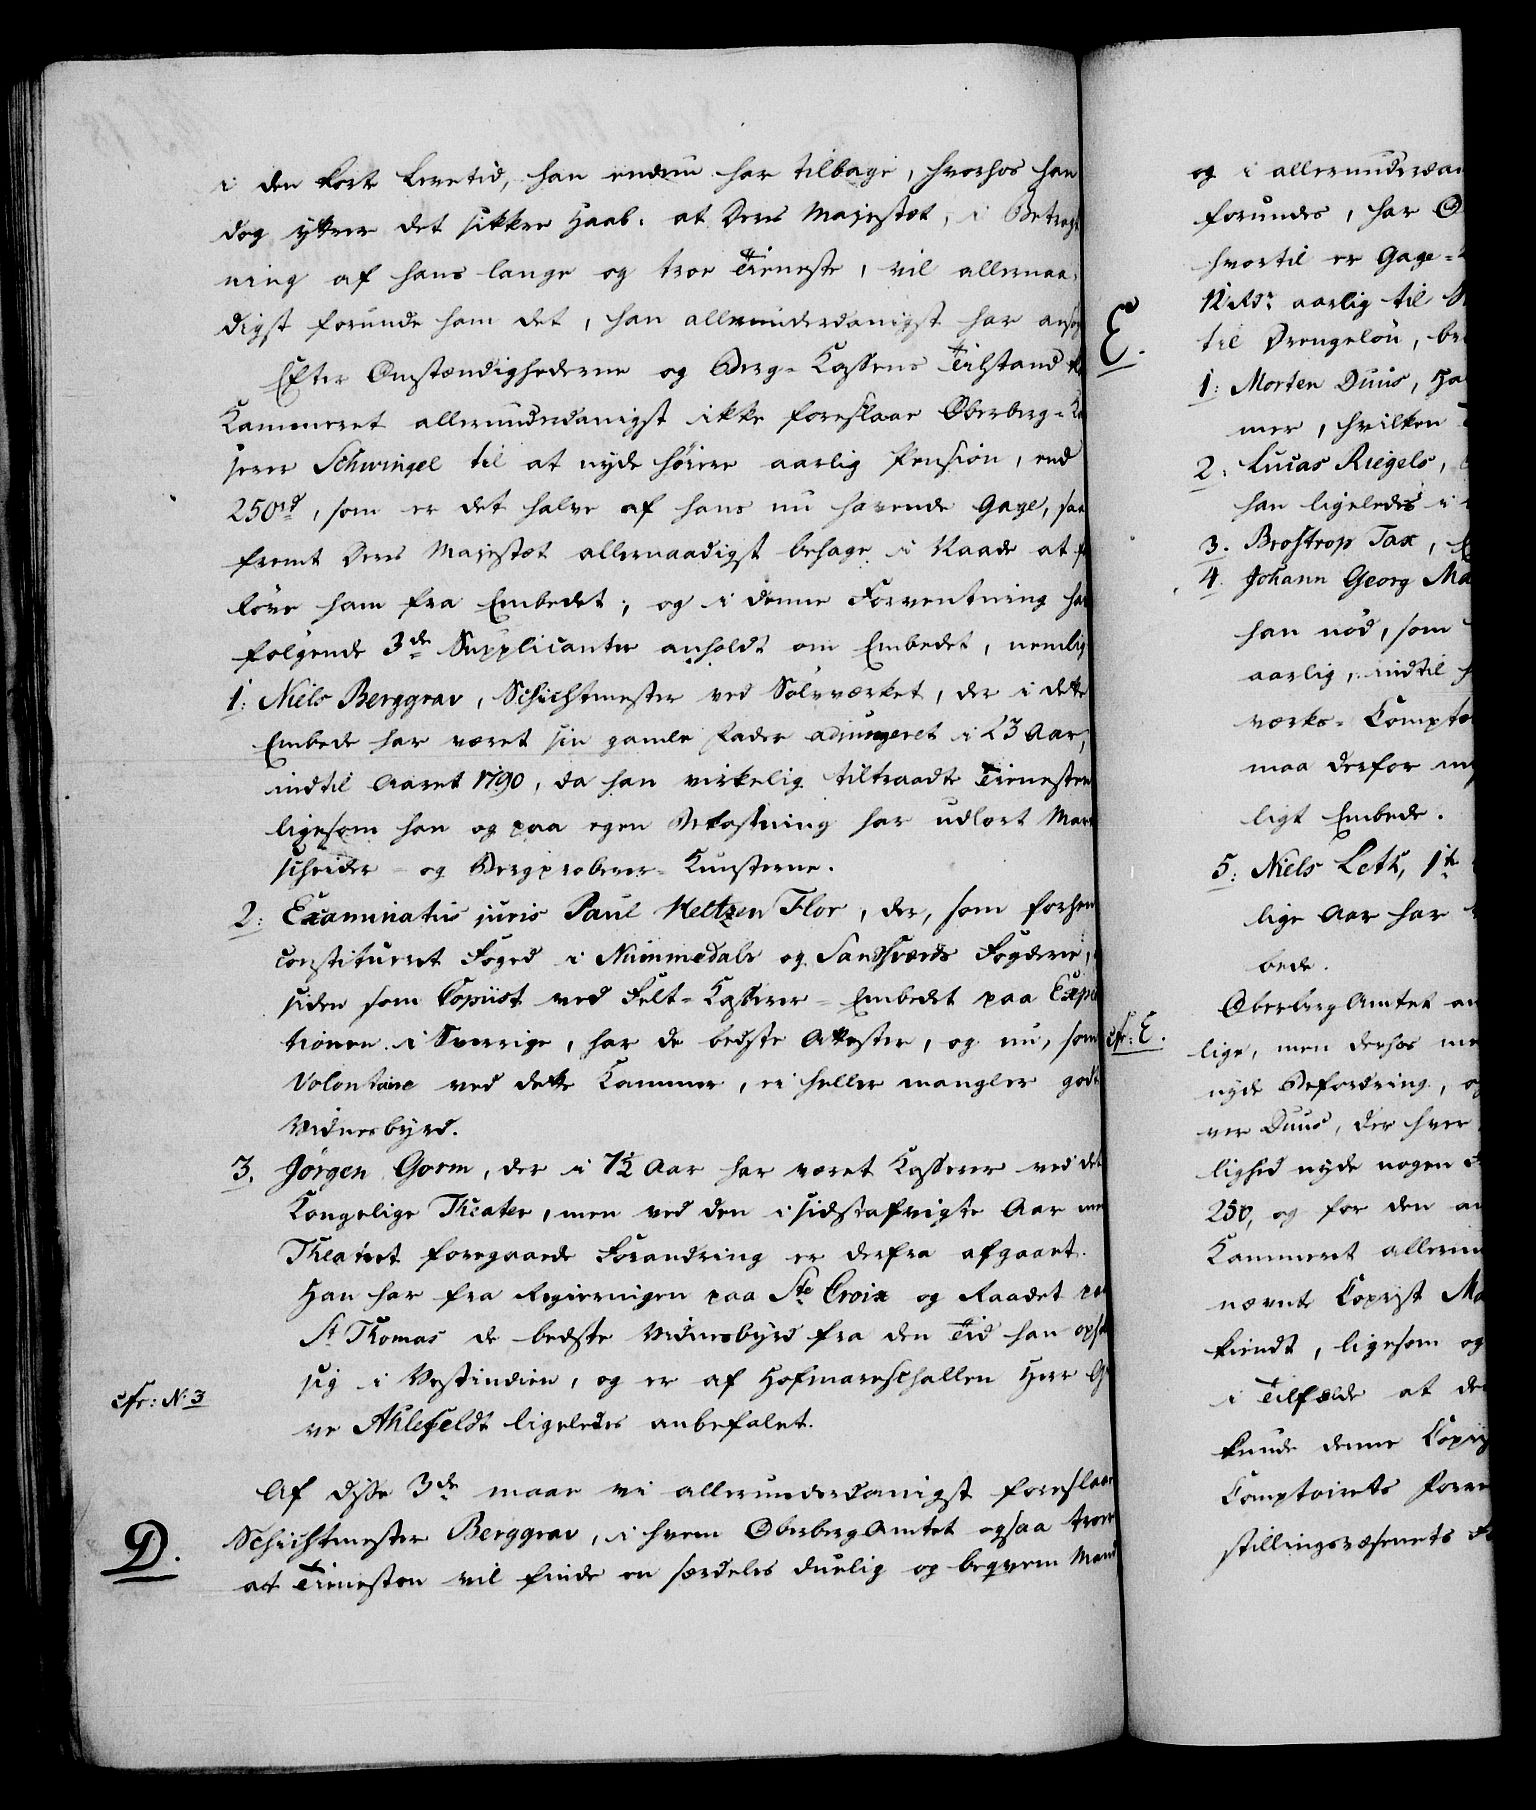 i den kort Levetid, han endnu har tilbage, hvorhos han
dog yttrer det sikkre Haab: at Deres Majestæt, i Betragt
ning af hans lange og troe Tieneste, vil allernaa-
digst forunde ham det, han allerunderdanigst har ansøg
Efter Omstændighederne og Berg-Kassens Tilstand
Kammeret allerunderdanigst ikke foreslaae Oberberg-Ka
serer Schwingel til at nyde høiere aarlig Pension, end
250rd, som er det halve af hans nu havende Gage, saa
fremt Deres Majestæt allernaadigst behager i Naade at
løse ham fra Embedet; og i denne Forventning har
følgende 3de Supplicanter anholdt om Embedet, nemlig
1: Niels Berggrav, Schichtmester ved Sølvværket, der i dette
Embede har været sin gamle Fader adjungeret i 23 Aar,
indtil Aaret 1790, da han virkelig tiltraadte Tienesten
ligesom han og paa egen Bekostning har udlært Mark
scheider- og Bergproberer-Kunsterne.
2: Examinatus juris Paul Heltzen Flor, der, som forhen
constitueret Foged i Nummedals og Sandsværds Fogderie,
siden som Copiist ved Felt-Kasserer-Embedet paa Expedi
tionen i Sverrige, har de bedste Attester, og nu, som
Volontaire ved dette Kammer, ei heller mangler godt
Vidnesbyrd.
3. Jörgen Gorm, der i 7½ Aar har været Kasserer ved det
Kongelige Theater, men ved den i sidstafvigte Aar med
Theatret foregaaede Forandring er derfra afgaaet.
Han har fra Regieringen paa Ste Croix og Raadet paa
St Thomas de bedste Vidnesbyrd fra den Tid han opholdt
sig i Vestindien, og er af Hofmareschallen Herr G
cfr: N: 3
ve Ahlefeldt ligeledes anbefalet.
Af disse 3de maae vi allerunderdanigst foreslaae
D. Schichtmester Berggrav, i hvem OberbergAmtet ogsaa troer
at Tienesten vil finde en særdeles duelig og beqvem Mand
og i allerunderdan
forundes, har O
hvortil er Gage-
E. 12 Rdr aarlig til
til Drengeløn, be
1: Morten Duus, Ha
mer, hvilken
2: Lucas Riegels,
han ligeledes i
3. Brostrop Tax,
4. Johann Georg Ma
han nød, som
aarlig, indtil h
værks-Comptoi
maa derfor
ligt Embede.
5: Niels Leth, 1te
lige Aar har
bede.
OberbergAmtet an
cfr: E. lige, men derhos me
nyde Befordring, o
ver Duus, der hver
lighed nyde nogen
250, og for den an
Kammeret allerun
nævnte Copiist Ma
kiendt, ligesom og
i Tilfælde at de
kunde denne Copiis
Comptoirets Forre
stillingsvæsenets